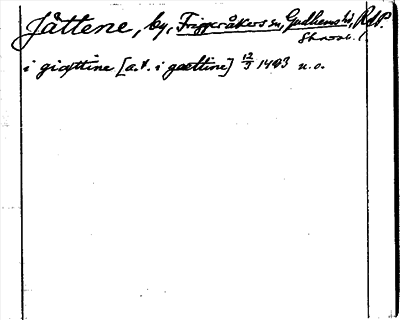 Jättene, by, Friggeråkers sn, Gudhems hd, RAP.
Skarab. l
i giættine [a. t. i gættine] 12/3 1403 u. o.